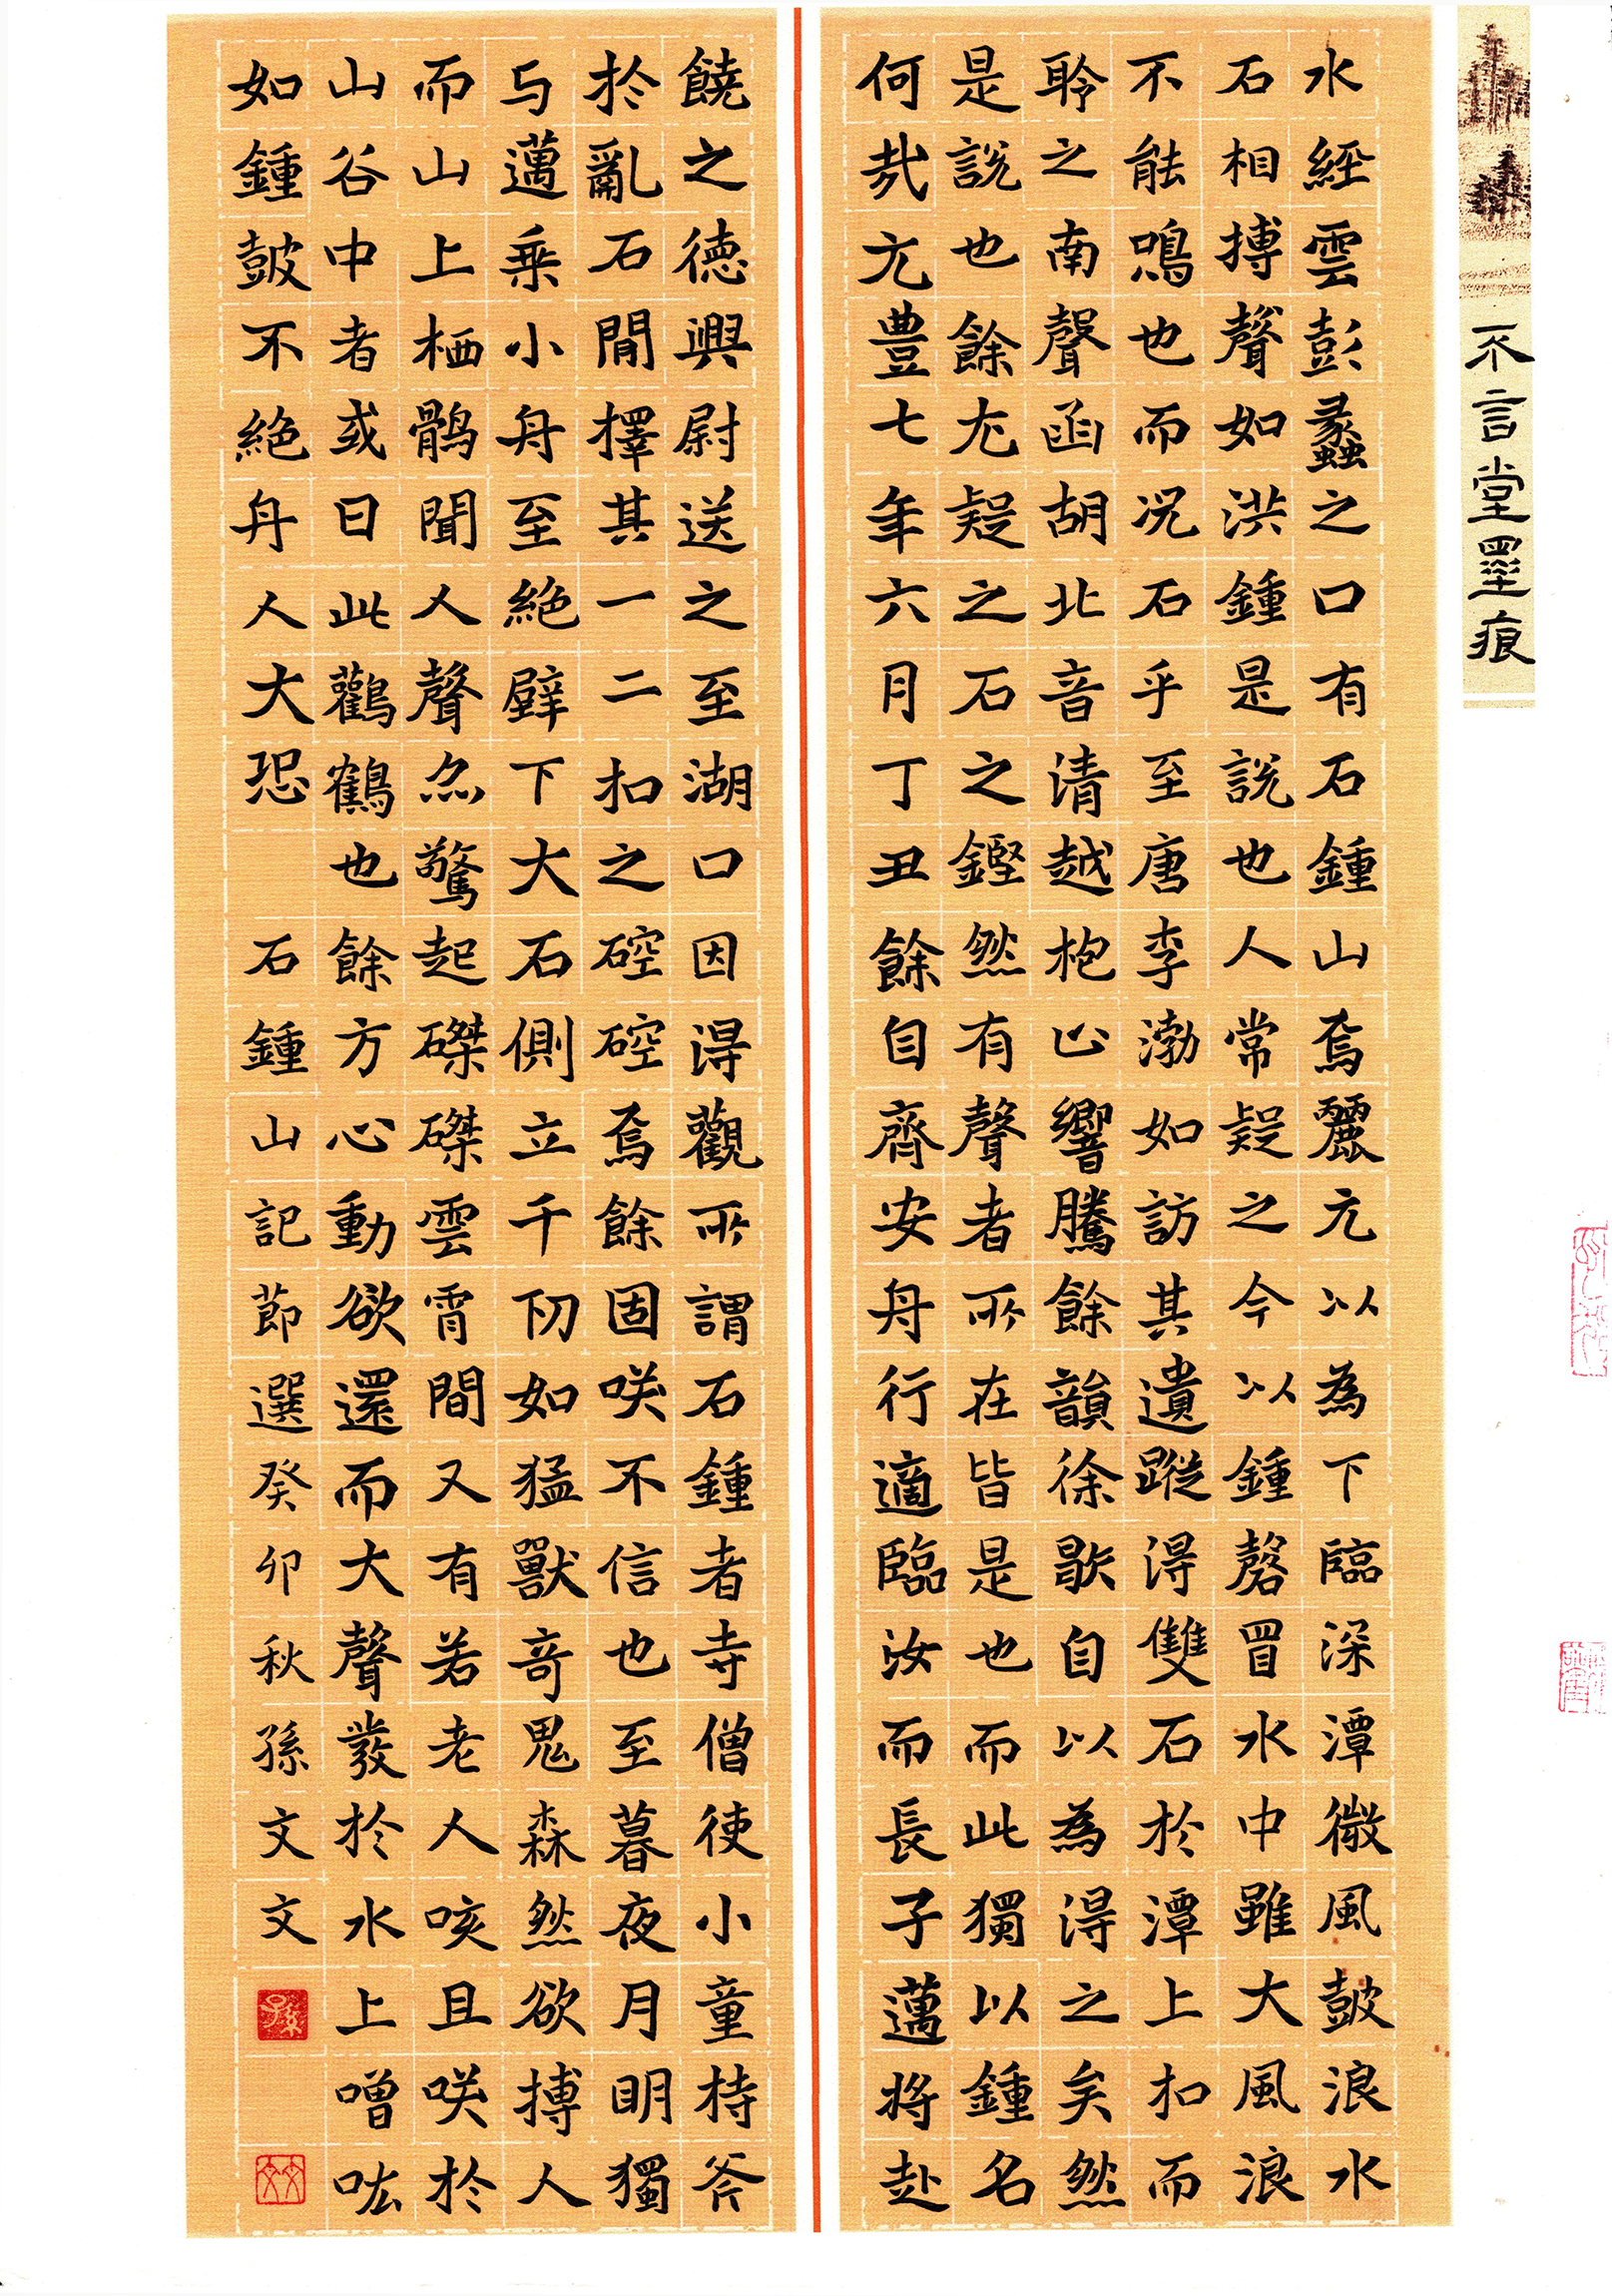 不言堂墨痕
水經雲彭蠡之口有石鍾山焉麗元以為下臨深潭微風鼓浪水
石相搏聲如洪鍾是說也人常疑之今以鍾磬置水中雖大風浪
不能鳴也而況石乎至唐李渤如訪其遺蹤得雙石於潭上扣而
聆之南聲函胡北音清越枹止響騰餘韻徐歇自以為得之矣然
是說也餘尤疑之石之鏗然有聲者所在皆是也而此獨以鍾名
何哉元豊七年六月丁丑餘自齊安舟行適臨汝而長子邁將赴
饒之德興尉送之至湖口因得觀所謂石鍾者寺僧使小童持斧
於亂石間擇其一二扣之硿硿焉餘固咲不信也至暮夜月明獨
与邁乘小舟至絕壁下大石側立千仞如猛獸奇鬼森然欲搏人
而山上栖鶻聞人聲亦驚起磔磔雲霄間又有若老人咳且咲於
山谷中者或曰此鸛鶴也餘方心動欲還而大聲發於水上噌吰
如鍾鼓不絕舟人大恐 石鍾山記節選癸卯秋孫文文
孫
文文